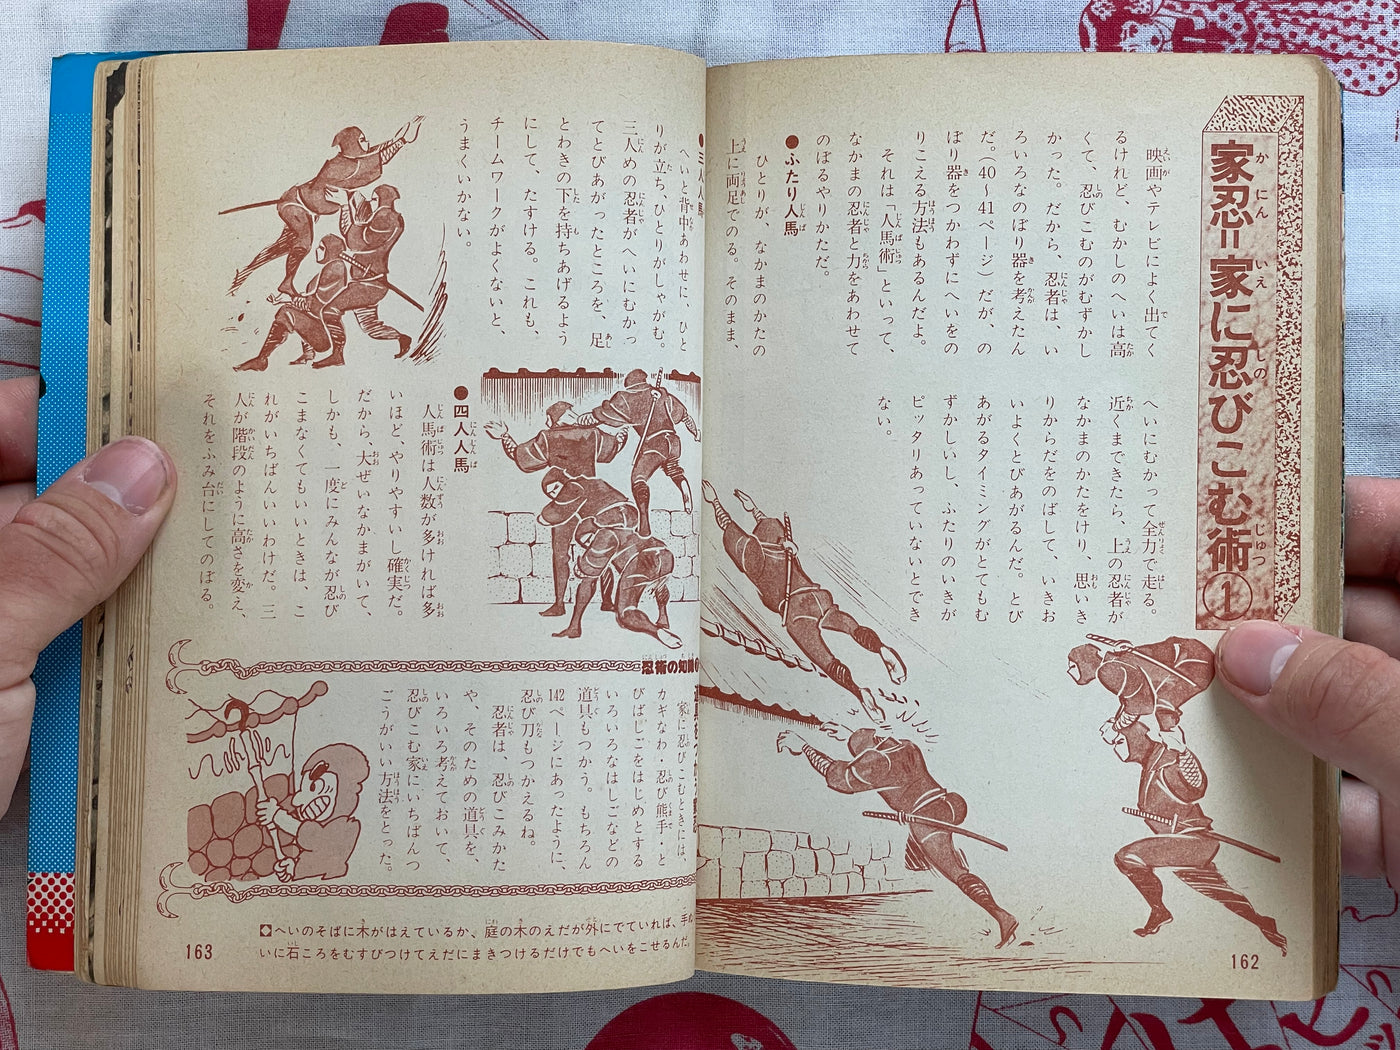 家忍=家に忍びこむ術①
映画やテレビによく出てく
るけれど、むかしのへいは高
くて、忍びこむのがむずかし
かった。だから、忍者は、い
ろいろなのぼり器を考えたん
だ。(40〜41ページ)だが、の
ぼり器をつかわずにへいをの
りこえる方法もあるんだよ。
それは「人馬術」といって、
なかまの忍者と力をあわせて
のぼるやりかただ。
●ふたり人馬
ひとりが、なかまのかたの
上に両足でのる。そのまま、
へいにむかって全力で走る。
近くまできたら、上の忍者が
なかまのかたをけり、思いき
りからだをのばして、いきお
いよくとびあがるんだ。とび
あがるタイミングがとてもむ
ずかしいし、ふたりのいきが
ピッタリあっていないとでき
ない。
162
●三人人馬
へいと背中あわせに、ひと
りが立ち、ひとりがしゃがむ。
三人めの忍者がへいにむかっ
てとびあがったところを、足
とわきの下を持ちあげるよう
にして、たすける。これも、
チームワークがよくないと、
うまくいかない。
●四人人馬
人馬術は人数が多ければ多
いほど、やりやすいし確実だ。
だから、大ぜいなかまがいて、
しかも、一度にみんなが忍び
こまなくてもいいときは、こ
れがいちばんいいわけだ。三
人が階段のように高さを変え、
それをふみ台にしてのぼる。
忍術の知識
家に忍びこむときには、
カギなわ・忍び熊手・と
びばしごをはじめとする
いろいろなはしごなどの
道具もつかう。もちろん
142ページにあったように、
忍び刀もつかえるね。
忍者は、忍びこみかた
や、そのための道具を、
いろいろ考えておいて、
忍びこむ家にいちばんつ
ごうがいい方法をとった。
へいのそばに木がはえているか、庭の木のえだが外にでていれば、手ぬ
いに石ころをむすびつけてえだにまきつけるだけでもへいをこせるんだ。
163